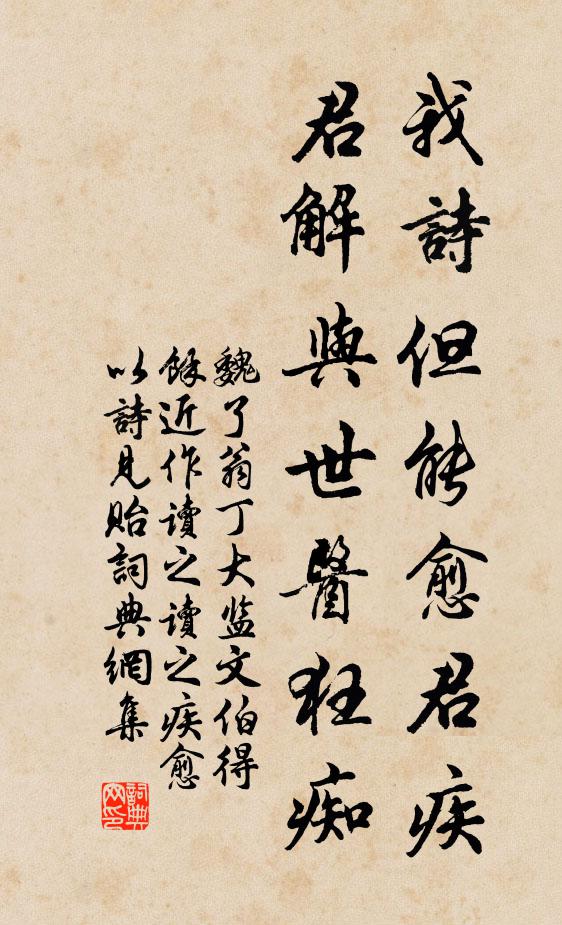 我詩但能愈君疾
君解與世醫狂痴
魏了翁丁大监文伯得
餘近作讀之讀之疾愈
以詩見貽詞典網集
詞典网印